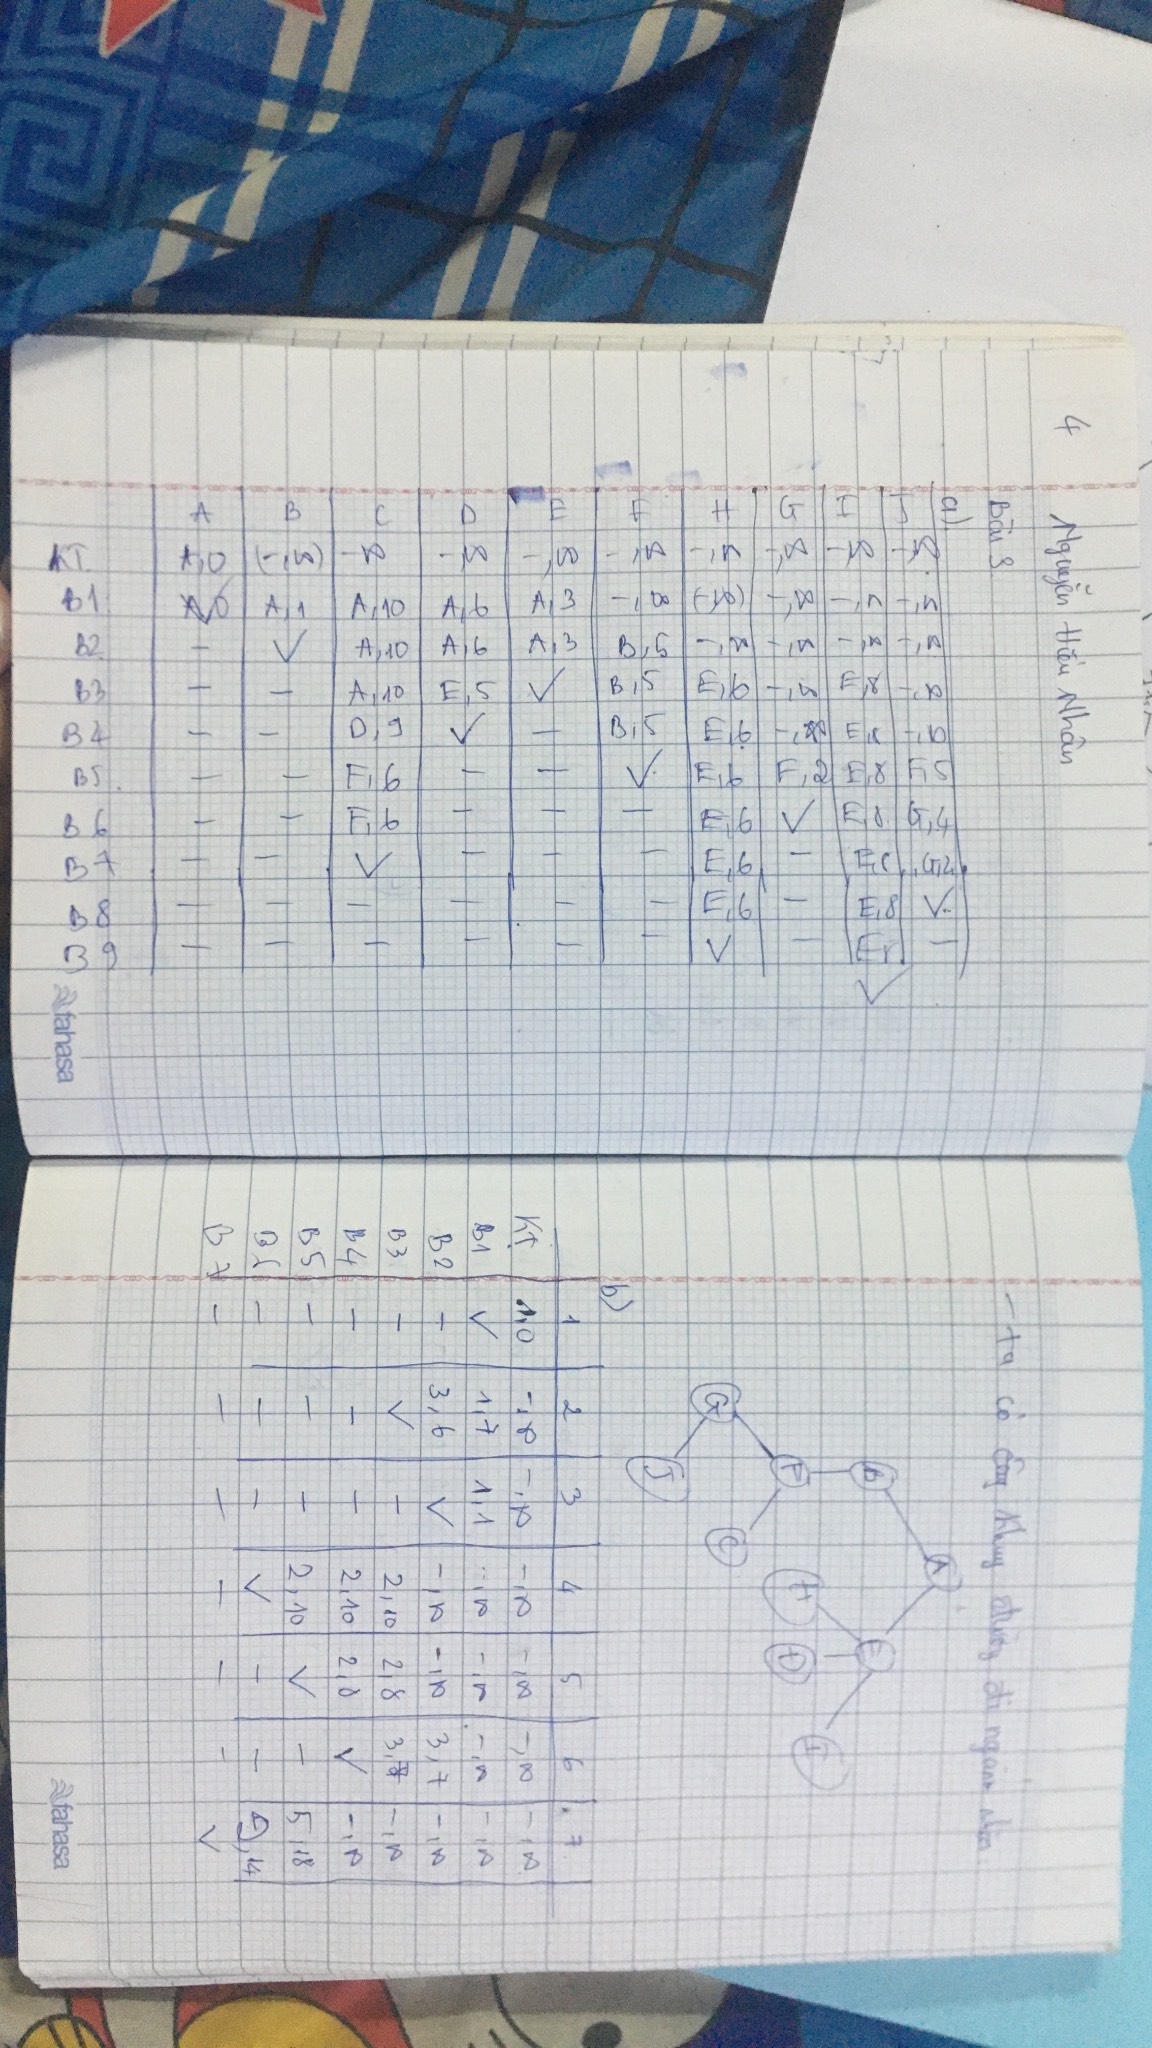 4 Nguyễn Hiếu Nhân
Bài 3
a)
A B C D E F H G I J
KT A,0 (-,∞) -∞ -∞ -,∞ -,∞ -,∞ -,∞ -∞ -∞
B1 A,0 A,1 A,10 A,6 A,3 -,∞ (-,∞) -,∞ -,∞ -,∞
B2 – ✓ A,10 A,6 A,3 B,5 -,∞ -,∞ -,∞ -,∞
B3 – – A,10 E,5 ✓ B,5 E,6 -,∞ E,8 -,∞
B4 – – D,9 ✓ – B,5 E,6 -,∞ E,8 -,∞
B5 – – F,6 – – ✓ E,6 F,2 E,8 F,5
B6 – – F,6 – – – E,6 ✓ E,8 G,4
B7 – – ✓ – – – E,6 – E,8 G,2
B8 – – – – – – E,6 – E,8 ✓
B9 – – – – – – ✓ – –
✓
fahasa
- ta có cây khung đường đi ngắn nhất
A
B E
G F H D I
J C
b)
1 2 3 4 5 6 7
KT 1,0 -,∞ -,∞ -,∞ -,∞ -,∞ -,∞
B1 ✓ 1,7 1,1 -,∞ -,∞ -,∞ -,∞
B2 – 3,6 ✓ -,∞ -,∞ 3,7 -,∞
B3 – ✓ – 2,10 2,8 3,7 -,∞
B4 – – – 2,10 2,8 ✓ -,∞
B5 – – – 2,10 ✓ – 5,18
B6 – – – ✓ – – ,14
B7 – – – – – – ✓
fahasa